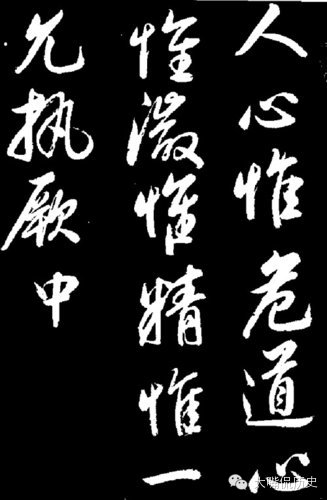 人心惟危道心
惟微惟精惟一
允执厥中
大嘴侃历史